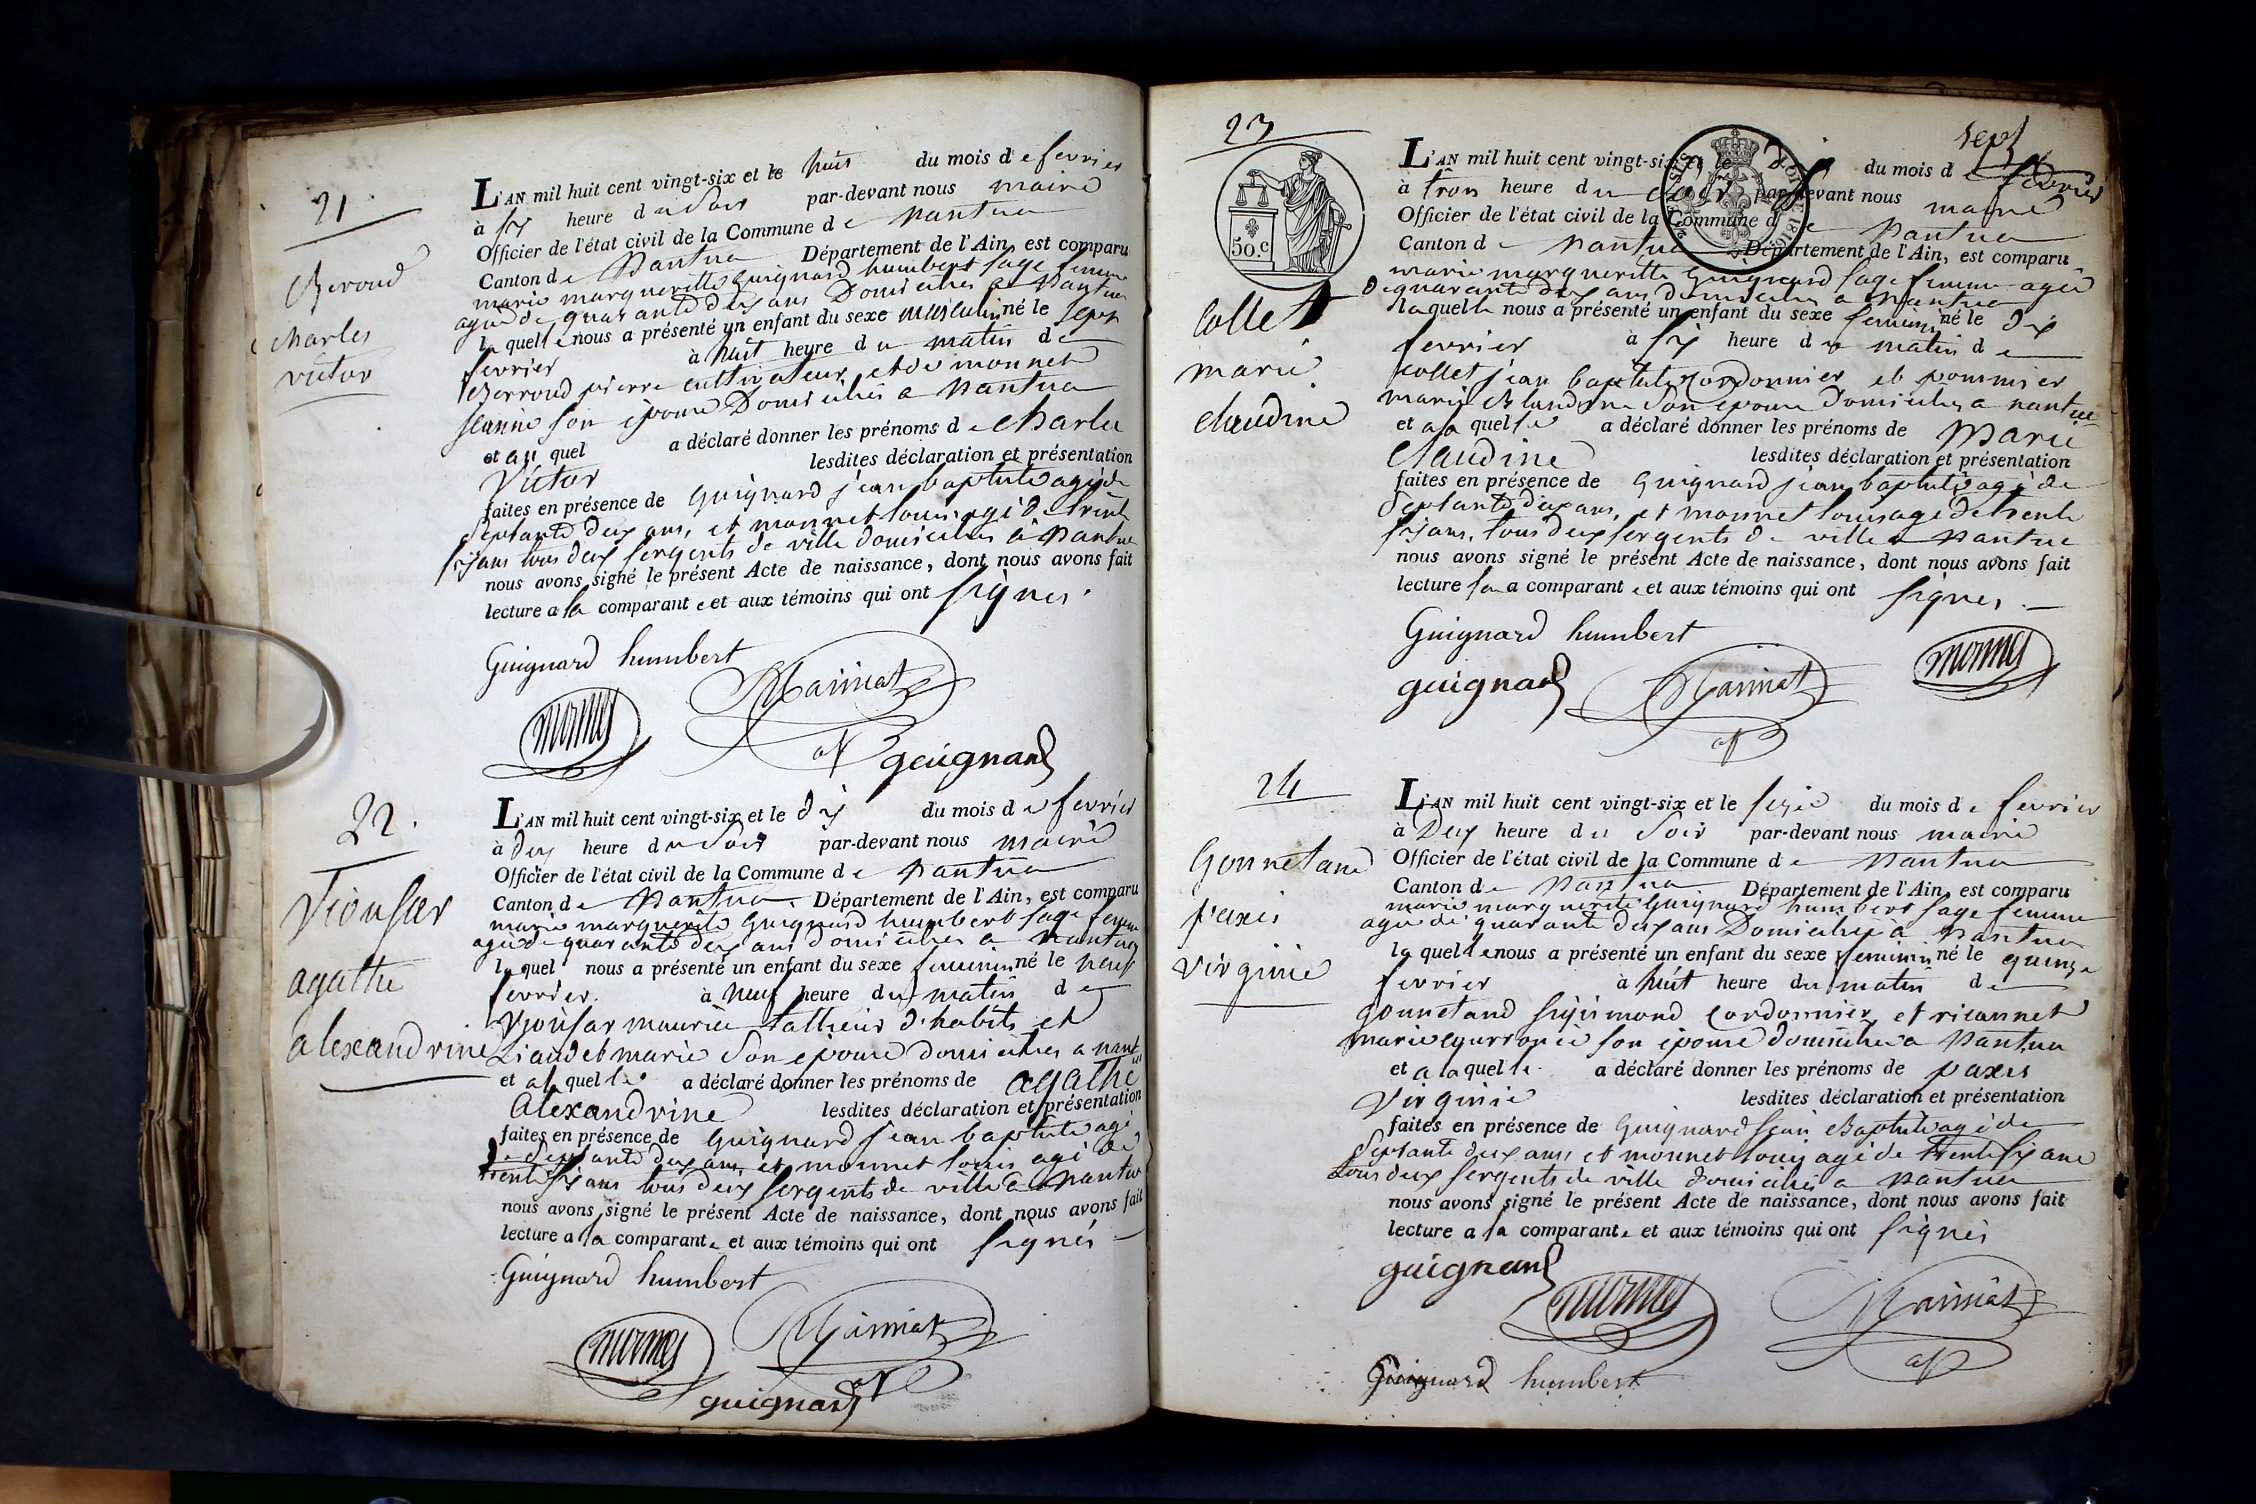 21.
Beroud
charles
victor
L'AN mil huit cent vingt-six et le huit du mois de fevrier
à six heure du Soir par-devant nous maire
Officier de l'état civil de la Commune de Nantua
Canton de Nantua Département de l'Ain, est comparu
marie margueritte Guignard humbert sage femme
agée de quarante deux ans Domiciliée a Nantua
laquelle nous a présenté un enfant du sexe masculin né le sept
fevrier à huit heure du matin de
Berroud pierre cultivateur et de monnet
jeanne son épouse Domiciliés a Nantua
et au quel a déclaré donner les prénoms de Charles
Victor lesdites déclaration et présentation
faites en présence de Guignard jean baptiste agé de
septante deux ans, et monnet louis agé de trente
six ans tous deux sergents de ville domiciliés à Nantua
nous avons signé le présent Acte de naissance, dont nous avons fait
lecture a la comparante et aux témoins qui ont signés.
Guignard humbert
monnet
guignard
22.
Viousar
agathe
alexandrine
L'AN mil huit cent vingt-six et le dix du mois de fevrier
à deux heure du Soir par-devant nous maire
Officier de l'état civil de la Commune de Nantua
Canton de Nantua. Département de l'Ain, est comparu
marie marguerite Guignard humbert sage femme
agée de quarante deux ans domiciliée a Nantua
laquel nous a présenté un enfant du sexe feminin né le neuf
fevrier. à neuf heure du matin de
maurice tailleur d'habits et
marie Son epouse domiciliés a nantua
et a la quelle a déclaré donner les prénoms de agathe
Alexandrine lesdites déclaration et présentation
faites en présence de Guignard jean baptiste agé
de septante deux ans et monnet louis agé de
trente six ans tous deux sergents de ville a Nantua
nous avons signé le présent Acte de naissance, dont nous avons fait
lecture a la comparante et aux témoins qui ont signés
Guignard humbert
monnet
guignard
sept
23
50.c
Collet
marie
claudine
L'AN mil huit cent vingt-six et le dix du mois de fevrier
à trois heure du soir par-devant nous maire
Officier de l'état civil de la Commune de Nantua
Canton de Nantua Département de l'Ain, est comparu
marie marguerite Guignard sage femme agée
de quarante deux ans domiciliée a Nantua
laquelle nous a présenté un enfant du sexe feminin né le dix
fevrier à six heure du matin de
collet jean baptiste cordonnier et pommier
marie son epouse domiciliés a nantua
et a la quelle a déclaré donner les prénoms de Marie
Claudine lesdites déclaration et présentation
faites en présence de Guignard jean baptiste agé de
septante deux ans, et monnet louis agé de trente
six ans, tous deux sergents de ville a Nantua
nous avons signé le présent Acte de naissance, dont nous avons fait
lecture a la comparante et aux témoins qui ont signés.
Guignard humbert
guignard
monnet
24
Gonnetand
paxes
Virginie
L'AN mil huit cent vingt-six et le seize du mois de fevrier
à Deux heure du Soir par-devant nous maire
Officier de l'état civil de la Commune de Nantua
Canton de Nantua Département de l'Ain, est comparu
marie marguerite Guignard humbert sage femme
agée de quarante deux ans Domiciliée à Nantua
laquelle nous a présenté un enfant du sexe feminin né le quinze
fevrier à huit heure du matin de
gonnetand sigismond cordonnier, et ricannet
marie son epouse domiciliés a Nantua
et a la quelle a déclaré donner les prénoms de paxes
Virginie lesdites déclaration et présentation
faites en présence de Guignard jean Baptiste agé de
septante deux ans et monnet louis agé de trente six ans
tous deux sergents de ville domiciliés a Nantua
nous avons signé le présent Acte de naissance, dont nous avons fait
lecture a la comparante et aux témoins qui ont signés
guignard
monnet
Guignard humbert